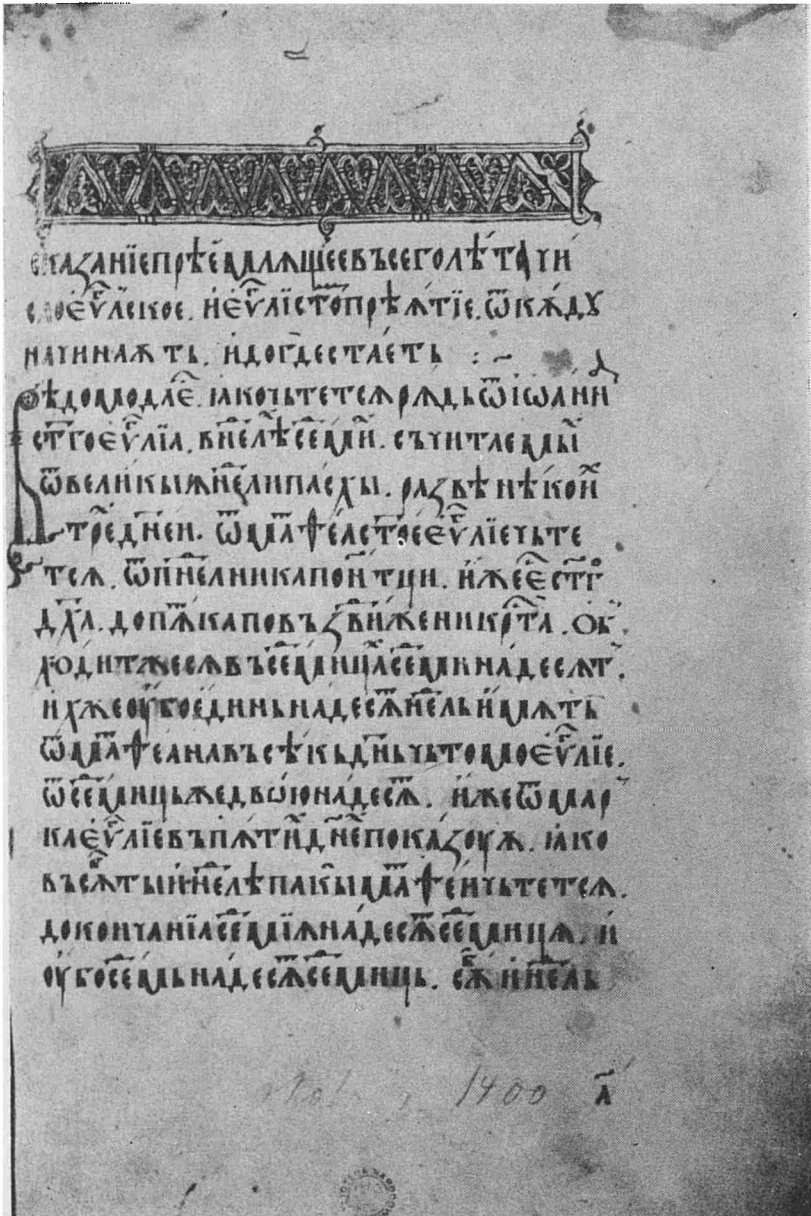 сказанїепрѣемлѧщеевъсеголѣтачи
слоеѵ҃лское. иеѵ҃лїстѡмпрѣѧтїе. ѿкѫдꙋ
начинаѫть. идогдестаеть :~
Вѣдомодае҃. ꙗкочьтетсѧрѧдьѿіѡанн
ст҃гоеѵ҃лїа. вн҃елѣсе҃дми. съчитаемы
ѿвеликыѧн҃елипасхы. развѣнѣкои
тре҃днеи. ѿмаⷮѳеастое҃еѵ҃лїечьте
тсѧ. ѿпн҃елникапон҃тци. иже҃ест҃г
дх҃а. допѧ҃каповъздвиженикрⷭта. об
ходитжесѧвъсе҃дмицасе҃дмнадесѧт.
ихжеоубоединьнадесѧ҃н҃ельимѧть
ѿмаⷮѳеанавъсѣкьд҃ньчьтомоеѵ҃лїе.
ѿсе҃дмицьжедвоюнадесѧ҃. ижеѿмар
каеѵ҃лїевъпѧтид҃не҃показоуѫ. ꙗко
въсѫтыин҃елѣпакымаⷮѳеичьтетсѧ.
докончанїасе҃дмїѧнадесѧ҃се҃дмицѧ. и
оубосе҃дмьнадесѧ҃се҃дмиць. сѫ҃ин҃ель
1400 а҃